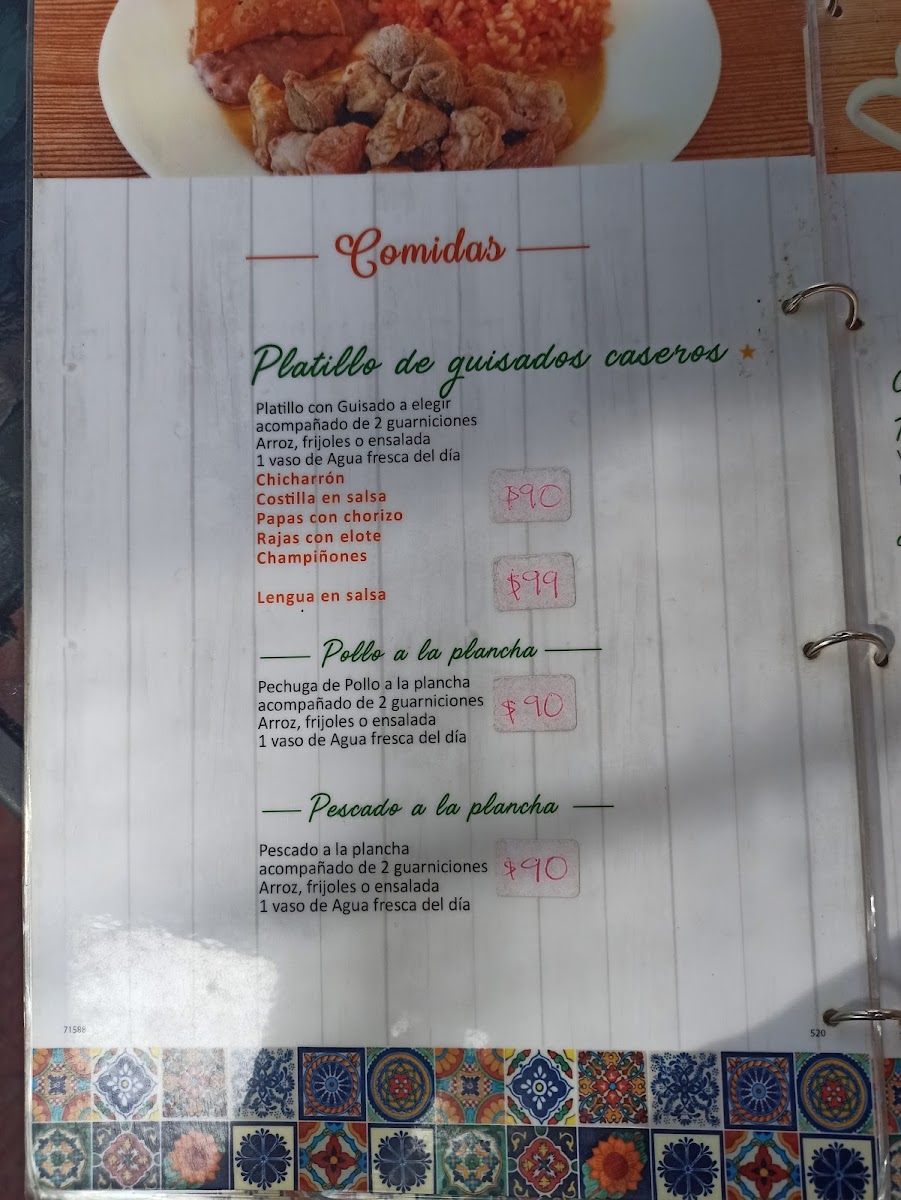 Comidas
Platillo de guisados caseros
Platillo con Guisado a elegir
acompañado de 2 guarniciones
Arroz, frijoles o ensalada
1 vaso de Agua fresca del día
Chicharrón
Costilla en salsa
$90
Papas con chorizo
Rajas con elote
Champiñones
$99
Lengua en salsa
Pollo a la plancha
Pechuga de Pollo a la plancha
acompañado de 2 guarniciones
$90
Arroz, frijoles o ensalada
1 vaso de Agua fresca del día
Pescado a la plancha
Pescado a la plancha
acompañado de 2 guarniciones
$90
Arroz, frijoles o ensalada
1 vaso de Agua fresca del día
71588
520